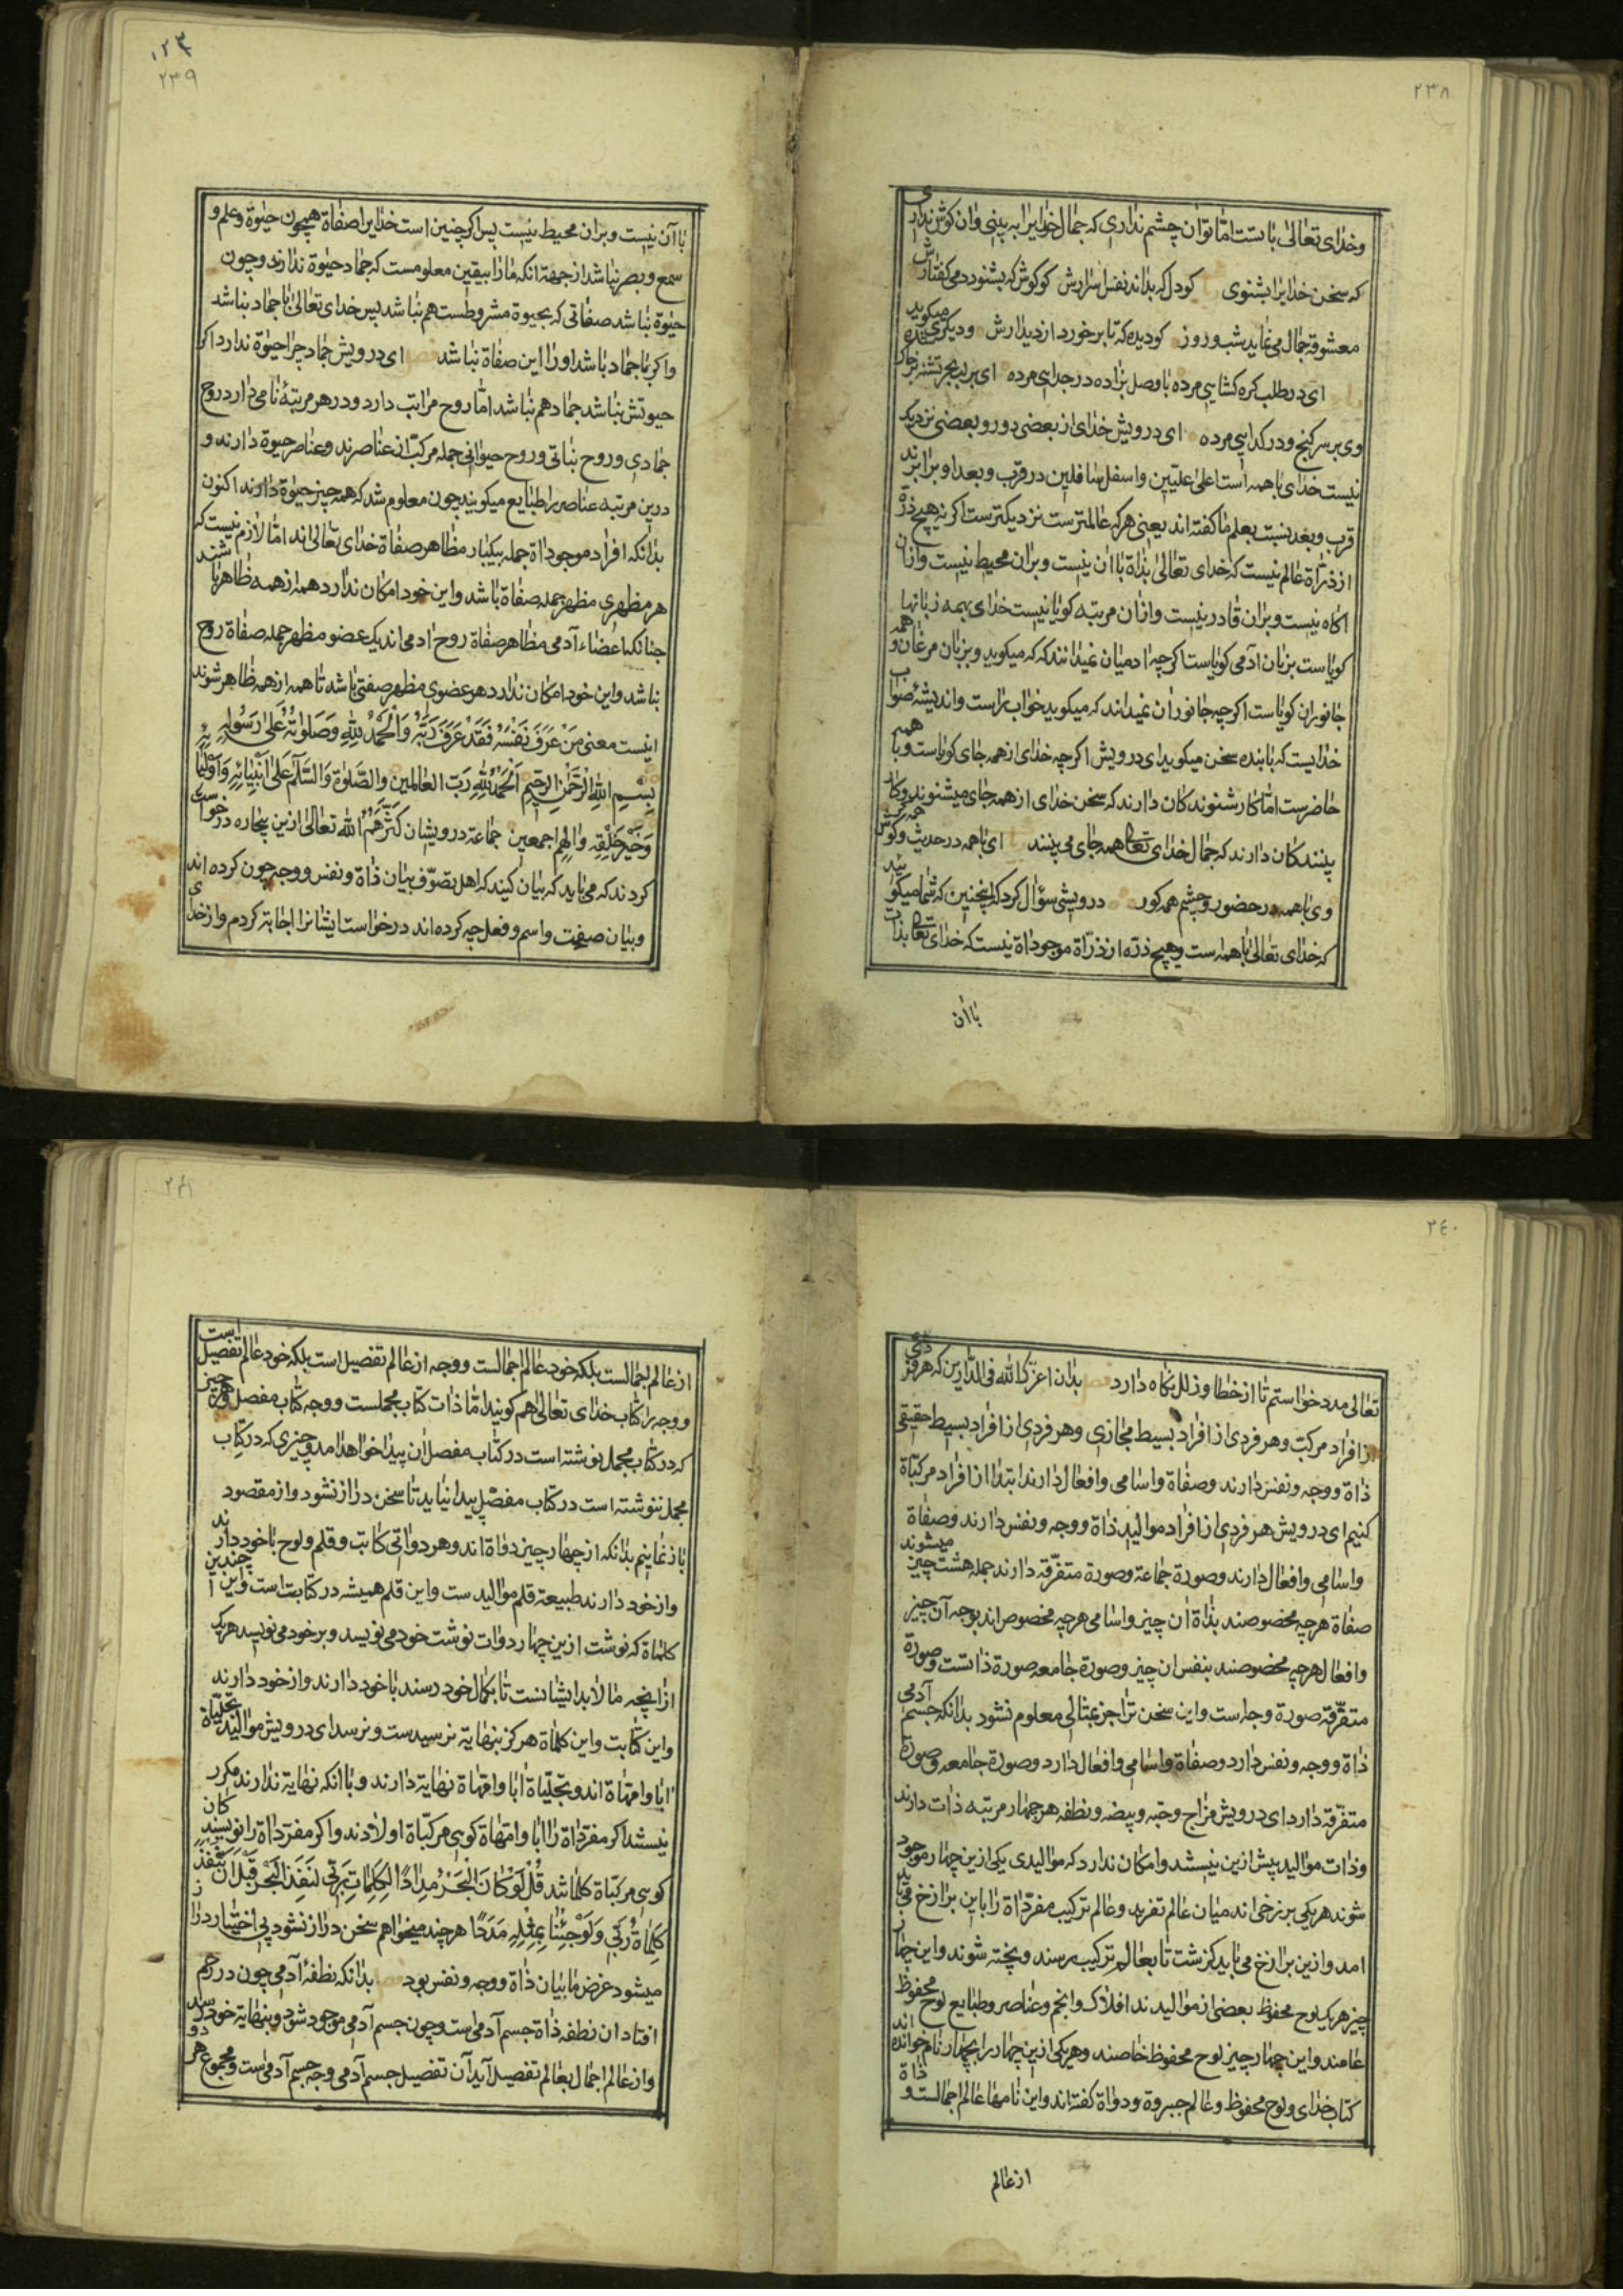 ٢٣٨
وخدای تعالی با تست امّا تو ان چشم نداری که جمال خدایرا به بینی و ان کوش نداری
که سخن خدایرا بشنوی کو دل که بداند نفسی اسرارش کو کوش که بشنود دمی کفتارش
معشوقه جمال می نماید شب و روز کو دیده که تا برخورد از دیدارش و دیکری میکوید
ای در طلب کره کشایی مرده با وصل بزاده در جدایی مرده ای بر لب بحر تشنه بر خاک شده
وی بر سر کنج و در کدایی مرده ای درویش خدای از بعضی دور و بعضی نزدیک
نیست خدای با همه است اعلی علیّین و اسفل سافلین در قرب و بعد او برابرند
قرب و بعد نسبت بعلم ما کفته اند یعنی هر که عالمترست نزدیکترست اکر نه هیچ ذرّه
از ذرّاة عالم نیست که خدای تعالی بذاة با ان نیست و بران محیط نیست و ازان
اکاه نیست و بران قادر نیست و ازان مرتبه کویا نیست خدای بهمه زبانها
کویاست بزبان آدمی کویاست اکرچه ادمیان نمیدانند که که میکوید و بزبان مرغان و همه
جانوران کویاست اکرچه جانوران نمیداند که میکوید خواب راست و اندیشهٔ صواب
خدایست که با بنده سخن میکوید ای درویش اکرچه خدای از همه جای کویاست و با همه
حاضرست امّا کار شنوندکان دارند که سخن خدای از همه جای میشنوند و کار
بینندکان دارند که جمال خدای تعالی همه جای می بینند ای با همه در حدیث و کوش همه کر
وی با همه در حضور و چشم همه کور درویشی سؤال کرد که اینچنین که شما میکویید
که خدای تعالی با همه ست و هیچ ذرّه از ذرّاة موجوداة نیست که خدای تعالی بذات
با ان
٢٣٩
با آن نیست و بران محیط نیست پس اکر چنین است خدایرا صفاة همچون حیوة و علم و
سمع و بصر نباشد از جهة انکه ما را بیقین معلومست که جماد حیوة ندارند و چون
حیوة نباشد صفاتی که بحیوة مشروطست هم نباشد پس خدای تعالی با جماد نباشد
و اکر با جماد باشد او را این صفاة نباشد فصل ای درویش جماد چرا حیوة ندارد اکر
حیوتش نباشد جماد هم نباشد امّا روح مراتب دارد و در هر مرتبهٔ نامی دارد روح
جمادی و روح نباتی و روح حیوانی جمله مرکّب از عناصرند و عناصر حیوة دارند و
درین مرتبه عناصر را طبایع میکویند چون معلوم شد که همه چیز حیوة دارند اکنون
بدانکه افراد موجوداة جمله بیکبار مظاهر صفاة خدای تعالی اند امّا لازم نیست که
هر مظهری مظهر جمله صفاة باشد و این خود امکان ندارد همه از همه ظاهر باشند
چنانکه اعضاء آدمی مظاهر صفاة روح ادمی اند یک عضو مظهر جمله صفاة روح
نباشد و این خود امکان ندارد هر عضوی مظهر صفتی باشد تا همه از همه ظاهر شوند
اینست معنی مَنْ عَرَفَ نَفْسَهُ فَقَدْ عَرَفَ رَبَّهُ وَالْحَمْدُ لِلّهِ وَصَلَوتُهُ عَلی رَسُولِهِ
بِسْمِ اللّهِ الرَّحْمنِ الرَّحِیمِ اَلْحَمْدُ لِلّهِ رَبِّ العالمین والصَّلوة والسَّلَامُ عَلی اَنْبِیائِهِ وَاَوْلِیَائِهِ
وَخَیْرِ خَلْقِهِ وآلِهِم اجمعین جماعة درویشان کَثَّرَهُمُ اللّه تعالی ازین بیچاره درخواست
کردند که می باید که بیان کنید که اهل تصوّف بیان ذاة و نفس و وجه چون کرده اند
و بیان صفت و اسم و فعل چه کرده اند درخواست ایشانرا اجابة کردم و از خدای
٢٤٠
تعالی مدد خواستم تا از خطا و زلل نکاه دارد فصل بدان اعزّک اللّه فی الدّارین که هر فردی
از افراد مرکب و هر فردی از افراد بسیط مجازی و هر فردی از افراد بسیط حقیقی
ذاة و وجه و نفس دارند و صفاة و اسامی و افعال دارند ابتدا از افراد مرکبّاة
کنیم ای درویش هر فردی از افراد موالید ذاة و وجه و نفس دارند و صفاة
و اسامی و افعال دارند و صورة جماعة و صورة متفرّقه دارند جمله هشت چیز میشوند
صفاة هر چه مخصوصند بذاة ان چیز و اسامی هر چه مخصوص اند بوجه آن چیز
و افعال هر چه مخصوصند بنفس ان چیز و صورة جامعه صورة ذاتست و صورة
متفرّقه صورة وجه است و این سخن ترا جز بمثالی معلوم نشود بدانکه جسم آدمی
ذاة و وجه و نفس دارد و صفاة و اسامی و افعال دارد و صورة جامعه و صورة
متفرّقه دارد ای درویش مزاج و حبّه و بیضه و نطفه هر چهار مرتبه ذات دارند
و ذات موالید پیش ازین نیستند و امکان ندارد که موالیدی یکی ازین چهار موجود
شوند هر یکی برزخی اند میان عالم تفرید و عالم ترکیب مفرداة را باین برازخ می باید
امد و ازین برازخ می باید کذشت تا بعالم ترکیب رسند و پخته شوند و این چهار
چیز هر یک لوح محفوظ بعضی از موالیدند افلاک و انجم و عناصر و طبایع لوح محفوظ
عامند و این چهار چیز لوح محفوظ خاصند و هر یکی ازین چهار را بچهار نام خوانده اند
کتاب خدای و لوح محفوظ و عالم جبروة و دواة کفته اند و این نامها عالم اجمالست و ذاة
از عالم
٢٤١
از عالم اجمالست بلکه خود عالم اجمالست و وجه از عالم تفصیل است بلکه خود عالم تفصیل است
و وجه را کتاب خدای تعالی هم کویند امّا ذات کتاب مجملست و وجه کتاب مفصل و هر چیزی
که در کتاب مجمل نوشته است در کتاب مفصل ان پیدا خواهد امد و چیزی که در کتاب
مجمل ننوشته است در کتاب مفصّل پیدا نیاید تا سخن دراز نشود و از مقصود
باز نمانیم بدانکه از چهار چیز دواة اند و هر دواتی کاتب و قلم و لوح با خود دارند
و از خود دارند طبیعة قلم موالیدست و این قلم همیشه در کتابت است و این چندین
کلماة که نوشت ازین چهار دوات نوشت خود می نویسد و بر خود می نویسد هر یک
از انچه مالابد ایشانست تا بکمال خود رسند با خود دارند و از خود دارند
و این کتابت و این کلماة هرکز بنهایة نرسیدست و نرسد ای درویش موالید تجلیّاة
ابا و امّهاة اند و تجلّیاة ابا و امّهاة نهایة دارند و با انکه نهایة ندارند مکرر
نیستند اکر مفرداة را ابا و امّهاة کویی مرکبّاة اولادند و اکر مفرداة را نویسندکان
کویی مرکبّاة کلماتند قُلْ لَوْ کَانَ الْبَحْرُ مِدَادًا لِکَلِمَاتِ رَبّی لَنَفِدَ الْبَحْرُ قَبْلَ اَنْ تَنْفَدَ
کَلِمَاةُ رَبّی وَلَوْ جِئْنَا بِمِثْلِهِ مَدَدًا هر چند میخواهم سخن دراز نشود بی اختیار دراز
میشود غرض ما بیان ذاة و وجه و نفس بود فصل بدانکه نطفهٔ آدمی چون در رحم
افتاد ان نطفه ذاة جسم آدمی است و چون جسم آدمی موجود شود و بنهایة خود رسد
و از عالم اجمال بعالم تفصیل آید آن تفصیل جسم آدمی وجه جسم آدمی است و مجموع هر دو